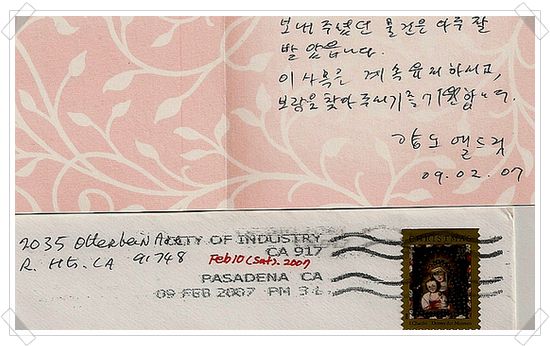 보내 주셨던 물건은 아주 잘
받았읍니다.
이 사목은 계속 유지하시고,
보람을 찾아 주시기를 기원합니다.
09.02.07
2035 Otterbein Ave
R. Hts. CA 91748
CITY OF INDUSTRY
CA 917
Feb 10 (Sat). 2007
PASADENA CA
09 FEB 2007 PM 3 L
CHRISTMAS